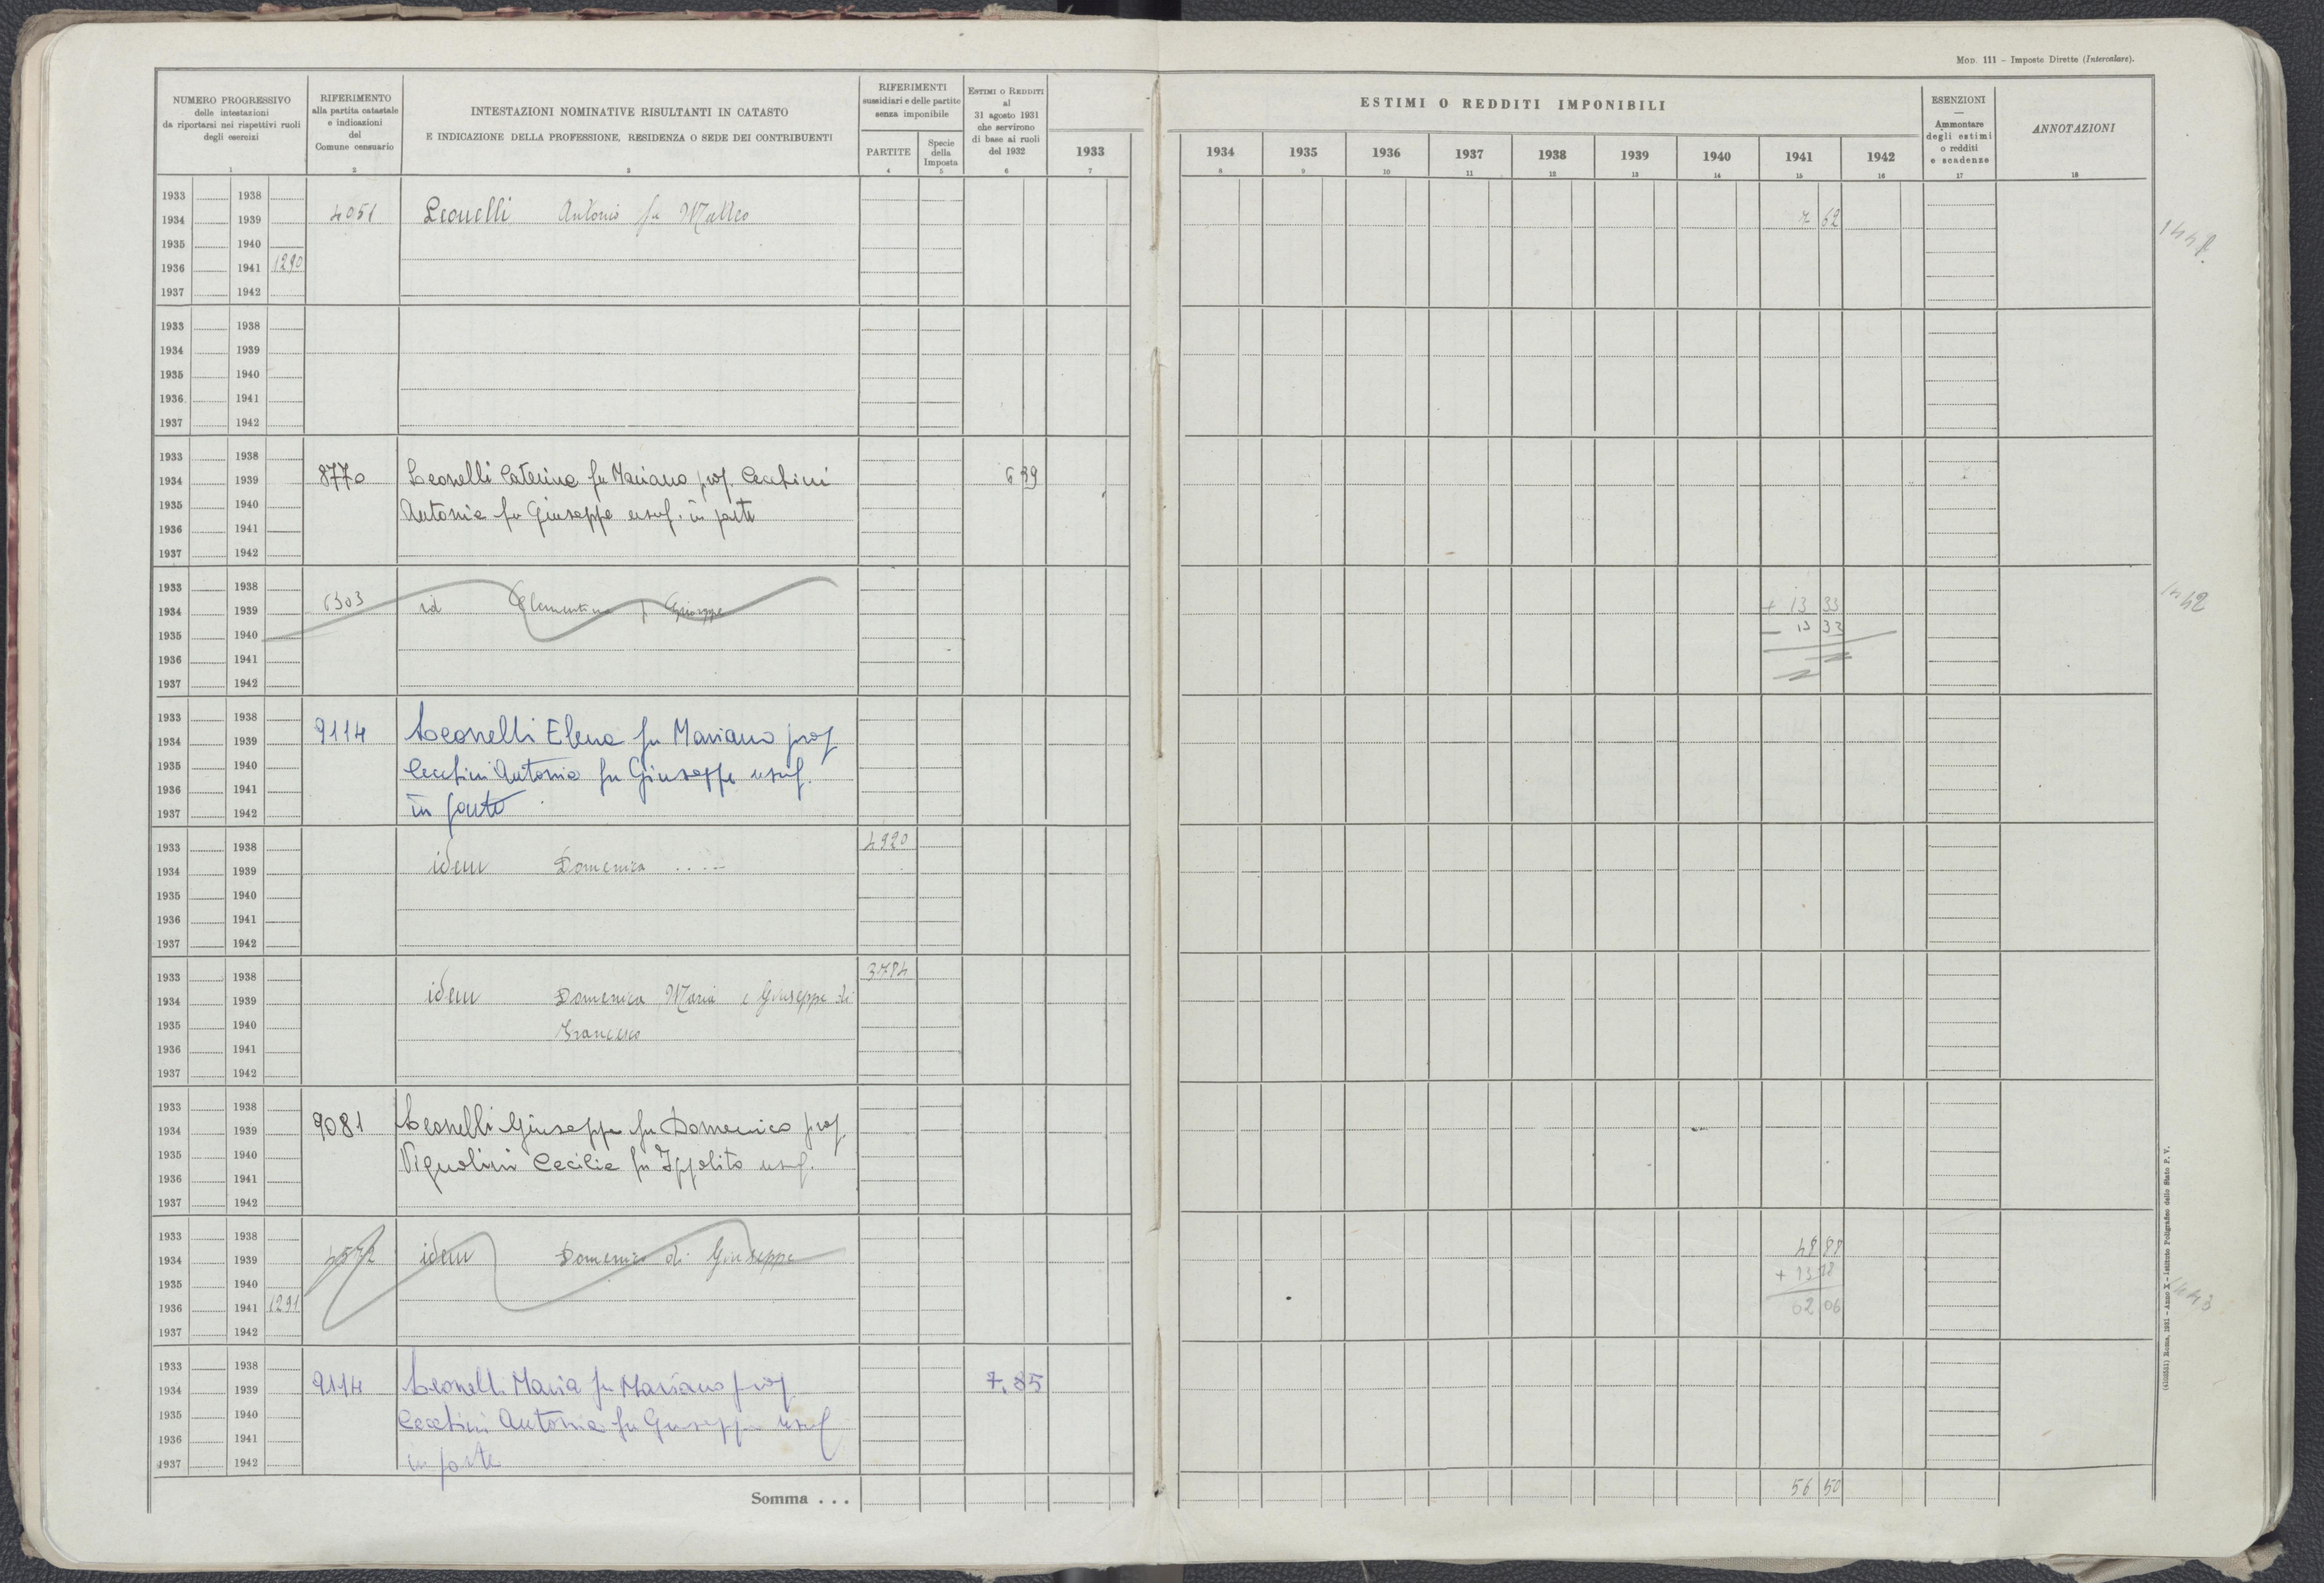 MOD. 111 - Imposte Dirette (Intercalare).
NUMERO PROGRESSIVO
delle intestazioni
da riportarsi nei rispettivi ruoli
degli esercizi
RIFERIMENTO
alla partita catastale
e indicazioni
del
Comune censuario
INTESTAZIONI NOMINATIVE RISULTANTI IN CATASTO
E INDICAZIONE DELLA PROFESSIONE, RESIDENZA O SEDE DEI CONTRIBUENTI
RIFERIMENTI
sussidiari e delle partite
senza imponibile
PARTITE
Specie
della
Imposta
ESTIMI O REDDITI
al
31 agosto 1931
che servirono
di base ai ruoli
del 1932
1933
ESTIMI O REDDITI IMPONIBILI
1934 1935 1936 1937 1938 1939 1940 1941 1942
ESENZIONI
—
Ammontare
degli estimi
o redditi
e scadenze
ANNOTAZIONI
1 2 3 4 5 6 7 8 9 10 11 12 13 14 15 16 17 18
1933 1938
1934 1939 4051 Leonelli Antonio fu Matteo 7 62
1935 1940
1936 1941 1290
1937 1942
1933 1938
1934 1939
1935 1940
1936 1941
1937 1942
1933 1938
1934 1939 8770 Leonelli Caterina fu Mariano prop. Cecchini 6 39
1935 1940 Antonia fu Giuseppe usuf. in parte
1936 1941
1937 1942
1933 1938
1934 1939 6303 id Clementina f Giuseppe + 13 33
1935 1940 — 13 33
1936 1941
1937 1942
1933 1938
1934 1939 9114 Leonelli Elena fu Mariano prop
1935 1940 Cecchini Antonia fu Giuseppe usuf.
1936 1941
1937 1942 in parte
1933 1938 4920
1934 1939 idem Domenica
1935 1940
1936 1941
1937 1942
1933 1938 3784
1934 1939 idem Domenica Maria e Giuseppe di
1935 1940 Francesco
1936 1941
1937 1942
1933 1938
1934 1939 9081 Leonelli Giuseppe fu Domenico prop
1935 1940 Vignolini Cecilia fu Ippolito usuf.
1936 1941
1937 1942
1933 1938
1934 1939 4572 idem Domenico di Giuseppe 48 88
1935 1940 + 13 18
1936 1941 1291 62 06
1937 1942
1933 1938
1934 1939 9114 Leonelli Maria fu Mariano prop 7,85
1935 1940 Cecchini Antonia fu Giuseppe usuf
1936 1941
1937 1942 in parte
Somma . . . 56 50
1442
1443
(4103351) Roma, 1931 - Anno X - Istituto Poligrafico dello Stato P. V.